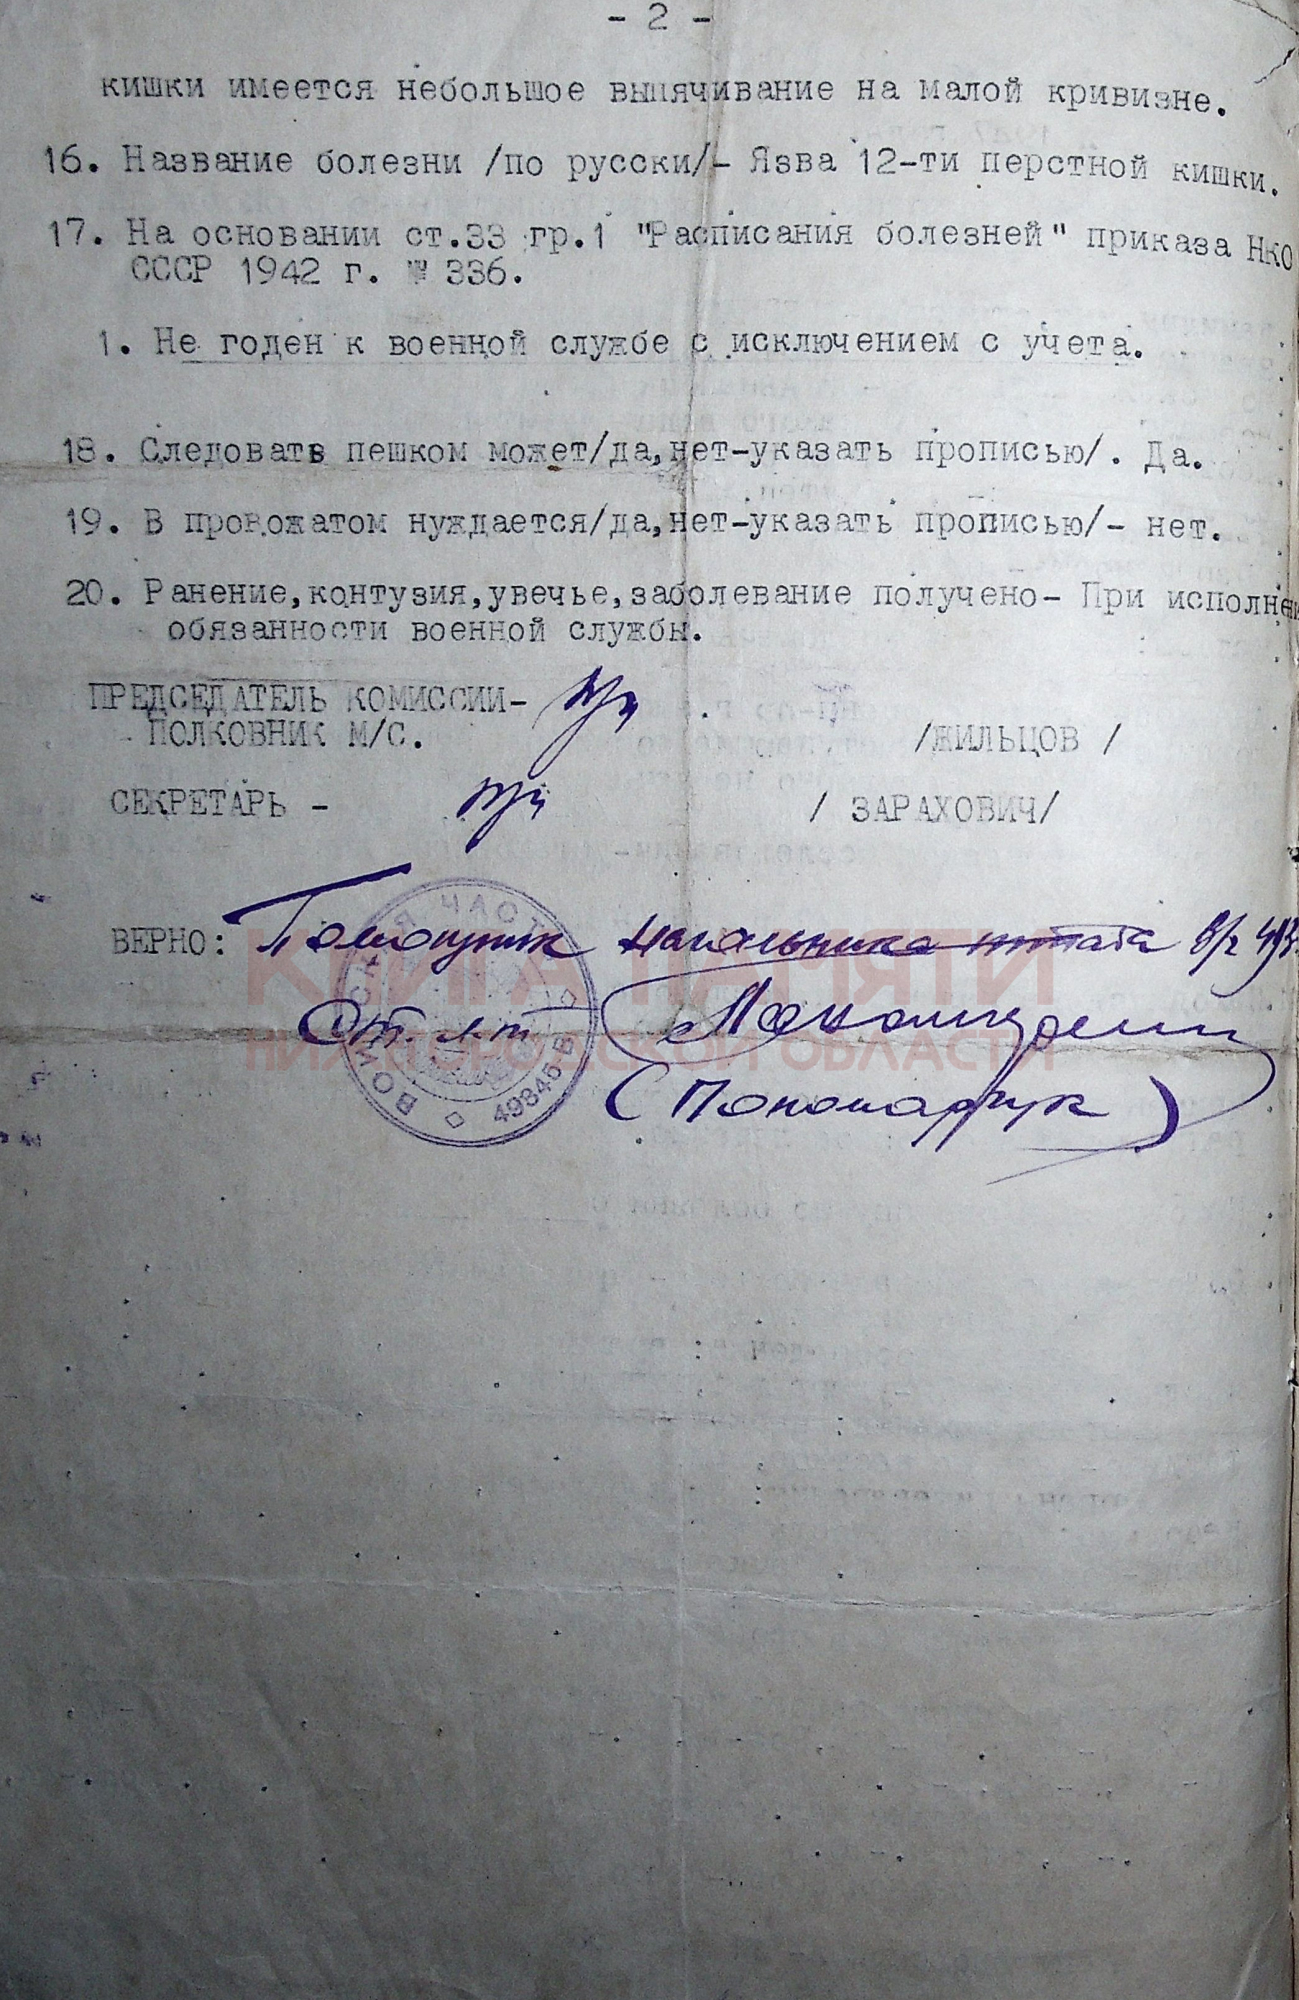 - 2 -
кишки имеется небольшое выпячивание на малой кривизне.
16. Название болезни /по русски/- Язва 12-ти перстной кишки.
17. На основании ст.33 гр.1 "Расписания болезней" приказа НКО
СССР 1942 г. № 336.
1. Не годен к военной службе с исключением с учета.
18. Следовать пешком может/да,нет-указать прописью/. Да.
19. В провожатом нуждается/да,нет-указать прописью/- нет.
20. Ранение,контузия,увечье,заболевание получено- При исполнен
обязанности военной службы.
ПРЕДСЕДАТЕЛЬ КОМИССИИ-
ПОЛКОВНИК М/С. /ЖИЛЬЦОВ /
СЕКРЕТАРЬ - / ЗАРАХОВИЧ/
ВЕРНО: Помощник начальника штаба в/ч
Ст. л-т
(Пономарчук)
ВОИНСКАЯ ЧАСТЬ
49345 В
КНИГА ПАМЯТИ
НИЖЕГОРОДСКОЙ ОБЛАСТИ